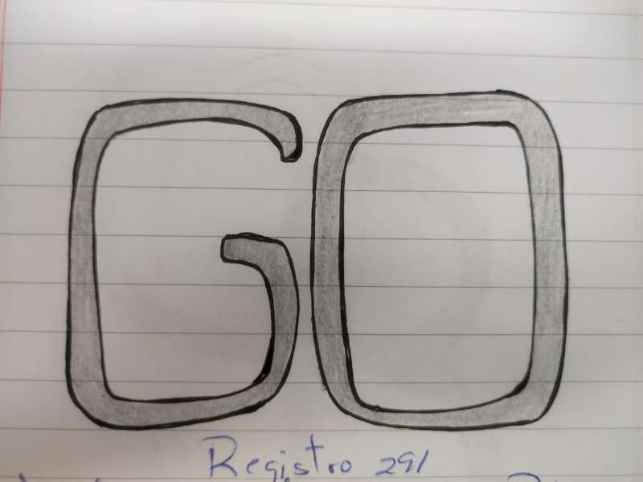 GO
Registro 291